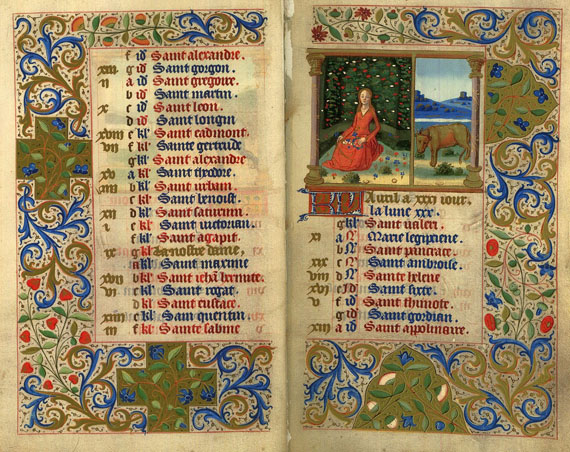 f id Saint alexandre.
xiii g id Saint gorgon.
ii a id Saint gregoire.
b id Saint martin.
x c id Saint leon.
d id Saint longin
xviii e kl' Saint eadmont.
vii f kl' Sainte gertrude
g kl' Saint alexandre
xv a kl' Saint theodore.
iiii b kl' Saint urbain.
c kl' Saint benoist.
xii d kl' Saint saturnin.
i e kl' Saint victorian.
f kl' Saint agapit.
ix g kl' La nostre dame,
a kl' Saint maxime
xvii b kl' Saint iehan hermite.
vi c kl' Saint rogat.
d kl' Saint eustace.
xiiii e kl' Sain quentin.
iii f kl' Sainte sabine
Auril a xxx iour.
la lune xxx.
g kl' Saint valeri.
xi a N' Marie legiptiene.
b N' Saint pancrace.
xix c N' Saint ambroise.
viii d N' Sainte helene
xvi e id Saint sixte.
v f id Saint thimote.
g id Saint gordian.
xiii a id Saint appolinaire.